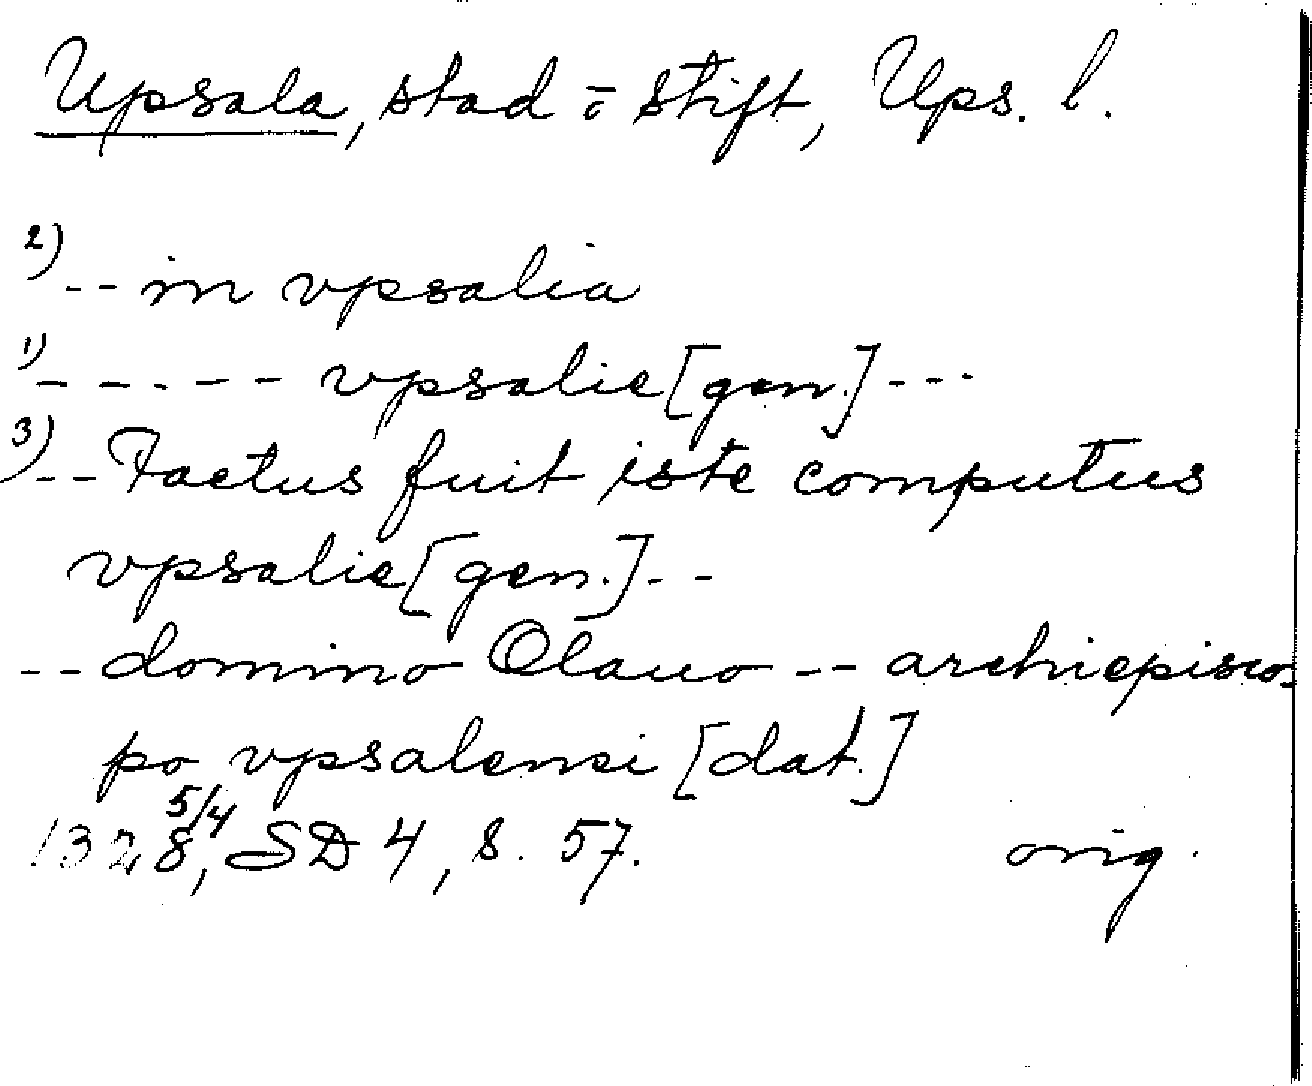 Upsala, stad o stift, Ups. l.
2) -- in vpsalia
1) ------ vpsalie [gen.] ---
3) -- Factus fuit iste computus
vpsalie [gen.] --
-- domino Olauo -- archiepisco-
po vpsalensi [dat.]
1328 5/4, SD 4, s. 57. orig.